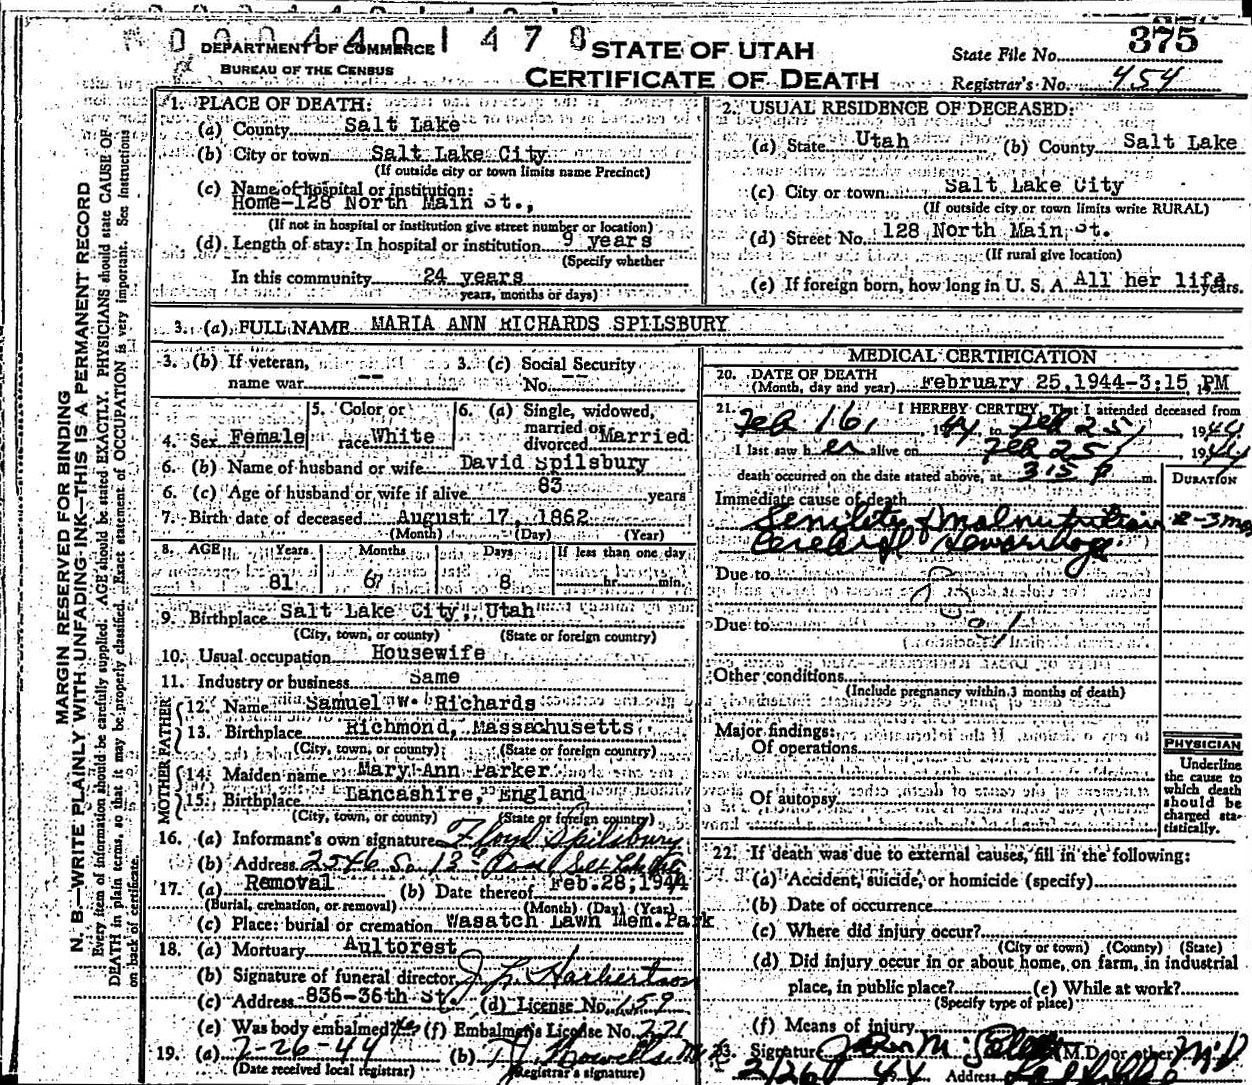 0004401478
DEPARTMENT OF COMMERCE
BUREAU OF THE CENSUS
STATE OF UTAH
CERTIFICATE OF DEATH
State File No. 375
Registrar's No. 454
MARGIN RESERVED FOR BINDING
N. B.—WRITE PLAINLY WITH UNFADING INK—THIS IS A PERMANENT RECORD
Every item of information should be carefully supplied. AGE should be stated EXACTLY. PHYSICIANS should state CAUSE OF
DEATH in plain terms, so that it may be properly classified. Exact statement of OCCUPATION is very important. See instructions
on back of certificate.
1. PLACE OF DEATH:
(a) County Salt Lake
(b) City or town Salt Lake City
(If outside city or town limits name Precinct)
(c) Name of hospital or institution:
Home-128 North Main St.,
(If not in hospital or institution give street number or location)
(d) Length of stay: In hospital or institution 9 years
(Specify whether
In this community 24 years
years, months or days)
2. USUAL RESIDENCE OF DECEASED:
(a) State Utah (b) County Salt Lake
(c) City or town Salt Lake City
(If outside city or town limits write RURAL)
(d) Street No. 128 North Main St.
(If rural give location)
(e) If foreign born, how long in U. S. A. All her life years.
3. (a) FULL NAME MARIA ANN RICHARDS SPILSBURY
3. (b) If veteran, name war -- 3. (c) Social Security No. --
4. Sex Female 5. Color or race White 6. (a) Single, widowed, married or divorced Married
6. (b) Name of husband or wife David Spilsbury
6. (c) Age of husband or wife if alive 83 years
7. Birth date of deceased August 17, 1862
(Month) (Day) (Year)
8. AGE Years Months Days If less than one day
81 6 8 hr. min.
9. Birthplace Salt Lake City, Utah
(City, town, or county) (State or foreign country)
10. Usual occupation Housewife
11. Industry or business Same
FATHER
12. Name Samuel W. Richards
13. Birthplace Richmond, Massachusetts
(City, town, or county) (State or foreign country)
MOTHER
14. Maiden name Mary Ann Parker
15. Birthplace Lancashire, England
(City, town, or county) (State or foreign country)
16. (a) Informant's own signature Floyd Spilsbury
(b) Address 2546 So. 13th East Salt Lake City
17. (a) Removal (b) Date thereof Feb.28,1944
(Burial, cremation, or removal) (Month) (Day) (Year)
(c) Place: burial or cremation Wasatch Lawn Mem.Park
18. (a) Mortuary Aultorest
(b) Signature of funeral director
(c) Address 836-36th St. (d) License No. 159
(e) Was body embalmed? Yes (f) Embalmer's License No. 221
19. (a) 2-26-44 (b)
(Date received local registrar) (Registrar's signature)
MEDICAL CERTIFICATION
20. DATE OF DEATH
(Month, day and year) February 25,1944-3:15 PM
21. I HEREBY CERTIFY, That I attended deceased from
Feb 16, 1944 to Feb 25, 1944
I last saw her alive on Feb 25, 1944
death occurred on the date stated above, at 3 15 p m.
DURATION
Immediate cause of death
Senility & malnutrition 2-3 mos
Cerebral Hemorrhage
Due to
Due to
Other conditions
(Include pregnancy within 3 months of death)
Major findings:
Of operations
Of autopsy
PHYSICIAN
Underline the cause to which death should be charged statistically.
22. If death was due to external causes, fill in the following:
(a) Accident, suicide, or homicide (specify)
(b) Date of occurrence
(c) Where did injury occur?
(City or town) (County) (State)
(d) Did injury occur in or about home, on farm, in industrial
place, in public place? (e) While at work?
(Specify type of place)
(f) Means of injury
23. Signature (M.D. or other) M.D
2/26 44 Address